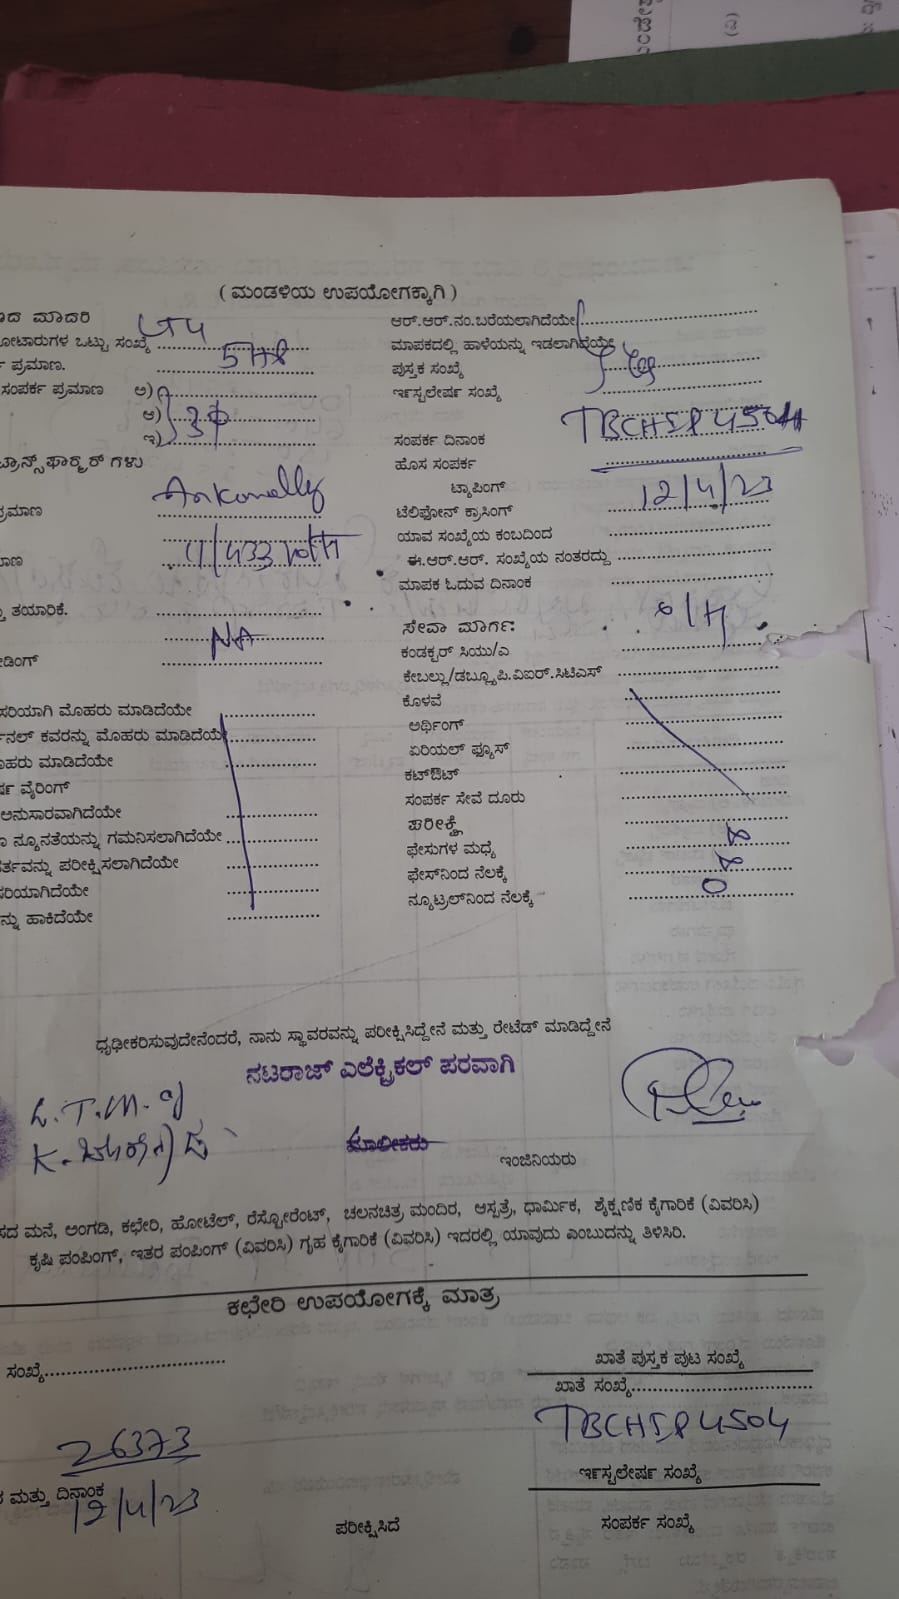 ( ಮಂಡಳಿಯ ಉಪಯೋಗಕ್ಕಾಗಿ )
ಮಾದರಿ
LT4
ಒಟ್ಟು ಸಂಖ್ಯೆ
5 HP
ಪ್ರಮಾಣ.
ಸಂಪರ್ಕ ಪ್ರಮಾಣ ಅ)
ಆ) 3ϕ
ಇ)
ಟ್ರಾನ್ಸ್‌ಫಾರ್ಮರ್ ಗಳು
11/433 volt
ತಯಾರಿಕೆ.
NA
ಸರಿಯಾಗಿ ಮೊಹರು ಮಾಡಿದೆಯೇ
ಕವರನ್ನು ಮೊಹರು ಮಾಡಿದೆಯೇ
ಮೊಹರು ಮಾಡಿದೆಯೇ
ವೈರಿಂಗ್
ಅನುಸಾರವಾಗಿದೆಯೇ
ನ್ಯೂನತೆಯನ್ನು ಗಮನಿಸಲಾಗಿದೆಯೇ
ಪರೀಕ್ಷಿಸಲಾಗಿದೆಯೇ
ಸರಿಯಾಗಿದೆಯೇ
ಹಾಕಿದೆಯೇ
ಆರ್.ಆರ್.ನಂ.ಬರೆಯಲಾಗಿದೆಯೇ
ಮಾಪಕದಲ್ಲಿ ಹಾಳೆಯನ್ನು ಇಡಲಾಗಿದೆಯೇ
ಪುಸ್ತಕ ಸಂಖ್ಯೆ
ಇನ್ಸ್ಟಲೇಷನ್ ಸಂಖ್ಯೆ
TBCHIP4504
ಸಂಪರ್ಕ ದಿನಾಂಕ
ಹೊಸ ಸಂಪರ್ಕ
ಟ್ಯಾಪಿಂಗ್ 12/4/23
ಟೆಲಿಫೋನ್ ಕ್ರಾಸಿಂಗ್
ಯಾವ ಸಂಖ್ಯೆಯ ಕಂಬದಿಂದ
ಈ.ಆರ್.ಆರ್. ಸಂಖ್ಯೆಯ ನಂತರದ್ದು
ಮಾಪಕ ಓದುವ ದಿನಾಂಕ
ಸೇವಾ ಮಾರ್ಗ: o/H
ಕಂಡಕ್ಟರ್ ಸಿಯು/ಎ
ಕೇಬಲ್ಲು/ಡಬ್ಲ್ಯೂಪಿ.ವಿಐರ್.ಸಿಟಿಎಸ್
ಕೊಳವೆ
ಅರ್ಥಿಂಗ್
ಏರಿಯಲ್ ಫ್ಯೂಸ್
ಕಟ್‌ಔಟ್
ಸಂಪರ್ಕ ಸೇವೆ ದೂರು
ಪರೀಕ್ಷೆ
ಫೇಸುಗಳ ಮಧ್ಯೆ ∞
ಫೇಸ್‌ನಿಂದ ನೆಲಕ್ಕೆ ∞
ನ್ಯೂಟ್ರಲ್‌ನಿಂದ ನೆಲಕ್ಕೆ 0
ಧೃಢೀಕರಿಸುವುದೇನೆಂದರೆ, ನಾನು ಸ್ಥಾವರವನ್ನು ಪರೀಕ್ಷಿಸಿದ್ದೇನೆ ಮತ್ತು ರೇಟೆಡ್ ಮಾಡಿದ್ದೇನೆ
ನಟರಾಜ್ ಎಲೆಕ್ಟ್ರಿಕಲ್ ಪರವಾಗಿ
L.T.M. of
ಮಾಲೀಕರು
ಇಂಜಿನಿಯರು
ಮನೆ, ಅಂಗಡಿ, ಕಛೇರಿ, ಹೋಟೆಲ್, ರೆಸ್ಟೋರೆಂಟ್, ಚಲನಚಿತ್ರ ಮಂದಿರ, ಆಸ್ಪತ್ರೆ, ಧಾರ್ಮಿಕ, ಶೈಕ್ಷಣಿಕ ಕೈಗಾರಿಕೆ (ವಿವರಿಸಿ)
ಕೃಷಿ ಪಂಪಿಂಗ್, ಇತರ ಪಂಪಿಂಗ್ (ವಿವರಿಸಿ) ಗೃಹ ಕೈಗಾರಿಕೆ (ವಿವರಿಸಿ) ಇದರಲ್ಲಿ ಯಾವುದು ಎಂಬುದನ್ನು ತಿಳಿಸಿರಿ.
ಕಛೇರಿ ಉಪಯೋಗಕ್ಕೆ ಮಾತ್ರ
ಸಂಖ್ಯೆ
ಖಾತೆ ಪುಸ್ತಕ ಪುಟ ಸಂಖ್ಯೆ
ಖಾತೆ ಸಂಖ್ಯೆ
TBCHIP4504
26373
ಇನ್ಸ್ಟಲೇಷನ್ ಸಂಖ್ಯೆ
ಮತ್ತು ದಿನಾಂಕ
12/4/23
ಪರೀಕ್ಷಿಸಿದೆ
ಸಂಪರ್ಕ ಸಂಖ್ಯೆ